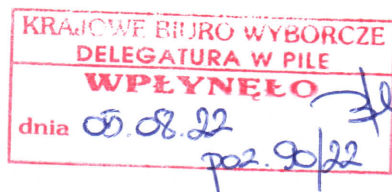 KRAJOWE BIURO WYBORCZE
DELEGATURA W PILE
WPŁYNĘŁO
dnia 05.08.22
poz. 90/22